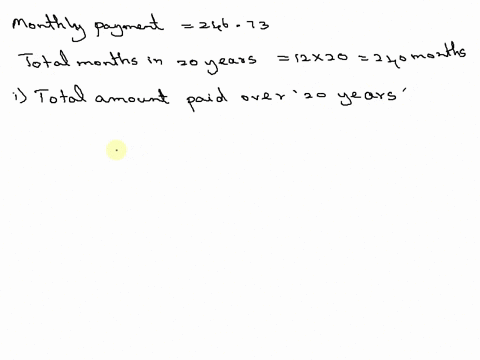 Monthly payment = 246.73
Total months in 20 years = 12×20 = 240 months
i) Total amount paid over '20 years'